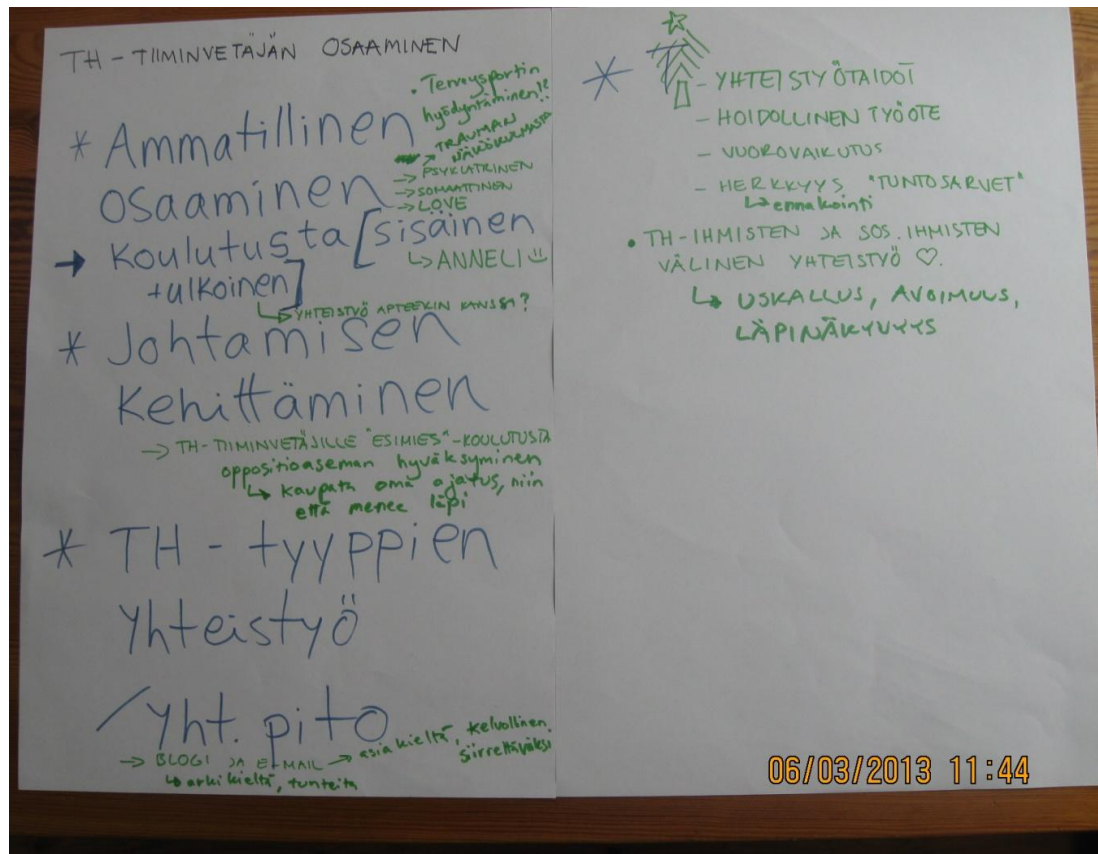 TH - TIIMINVETÄJÄN OSAAMINEN
* Ammatillinen
osaaminen
• Terveysportin
hyödyntäminen!?
→ TRAUMAN
NÄKÖKULMASTA
→ PSYKIATRINEN
→ SOMAATTINEN
→ LOVE
→ Koulutusta [sisäinen
+ulkoinen]
↳ ANNELI
↳ YHTEISTYÖ APTEEKIN KANSSA?
* Johtamisen
Kehittäminen
→ TH-TIIMINVETÄJILLE "ESIMIES"-KOULUTUSTA
oppositioaseman hyväksyminen
↳ kaupata oma ajatus, niin
että menee läpi
* TH - tyyppien
Yhteistyö
/yht. pito
→ BLOGI JA E-MAIL → asia kieltä, kelvollinen
siirrettäväksi
↳ arki kieltä, tunteita
*
- YHTEISTYÖTAIDOT
- HOIDOLLINEN TYÖOTE
- VUOROVAIKUTUS
- HERKKYYS "TUNTOSARVET"
↳ ennakointi
• TH-IHMISTEN JA SOS. IHMISTEN
VÄLINEN YHTEISTYÖ ♡.
↳ USKALLUS, AVOIMUUS,
LÄPINÄKYVYYS
06/03/2013 11:44